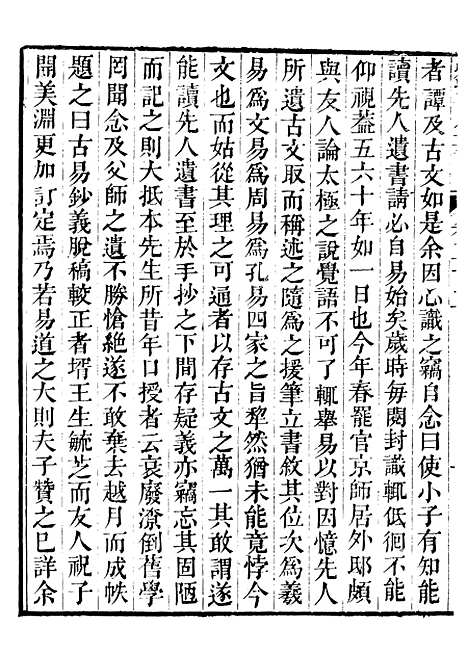 者譚及古文如是余因心識之竊自念曰使小子有知能
讀先人遺書請必自易始矣歲時每閱封識輒低徊不能
仰視葢五六十年如一日也今年春罷官京師居外邸頗
與友人論太極之說覺語不可了輒舉易以對因憶先人
所遺古文取而稱述之隨爲之援筆立書敘其位次爲羲
易爲文易爲周易爲孔易四家之旨犂然猶未能竟悖今
文也而姑從其理之可通者以存古文之萬一其敢謂遂
能讀先人遺書至於手抄之下間存疑義亦竊忘其固陋
而記之則大抵本先生所昔年口授者云哀廢潦倒舊學
罔聞念及父師之遺不勝愴絶遂不敢棄去越月而成帙
題之曰古易鈔義脫稿較正者壻王生毓芝而友人祝子
開美淵更加訂定焉乃若易道之大則夫子贊之已詳余